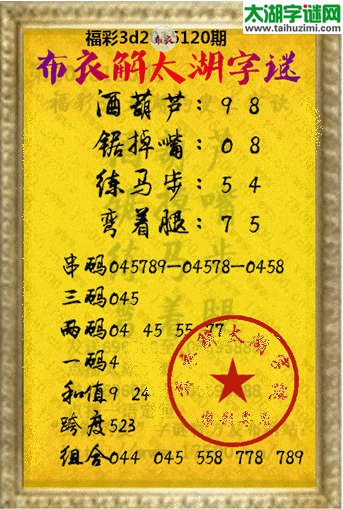 太湖字谜网
www.taihuzimi.com
福彩3d2 5120期
布衣
布衣解太湖字谜
酒葫芦：9 8
锯掉嘴：0 8
练马步：5 4
弯着腿：7 5
串码045789—04578—0458
三码045
两码04 45 55 77
一码4
和值9 24
跨度523
组合044 045 558 778 789